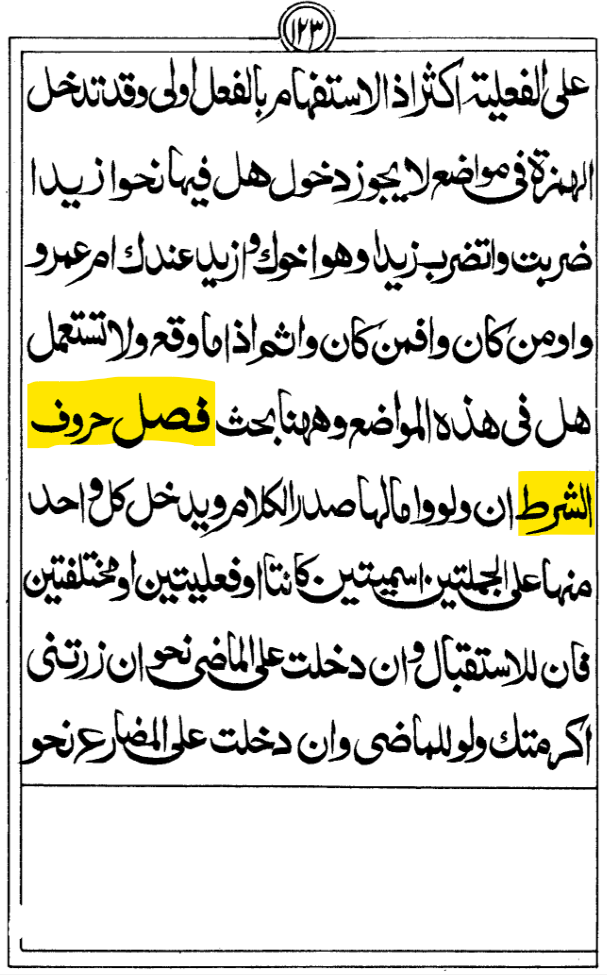 ١٢٣
على الفعلية اكثر اذ الاستفهام بالفعل اولى وقد تدخل
الهمزة فى مواضع لا يجوز دخول هل فيها نحو ازيدا
ضربت واتضرب زيدا وهو اخوك وازيد عندك ام عمرو
واومن كان وافمن كان واثم اذا ما وقع ولا تستعمل
هل فى هذه المواضع وههنا بحث فصل حروف
الشرط ان ولو واما لها صدر الكلام ويدخل كل واحد
منها على الجملتين اسميتين كانتا او فعليتين او مختلفتين
فان للاستقبال وان دخلت على الماضى نحو ان زرتنى
اكرمتك ولو للماضى وان دخلت على المضارع نحو